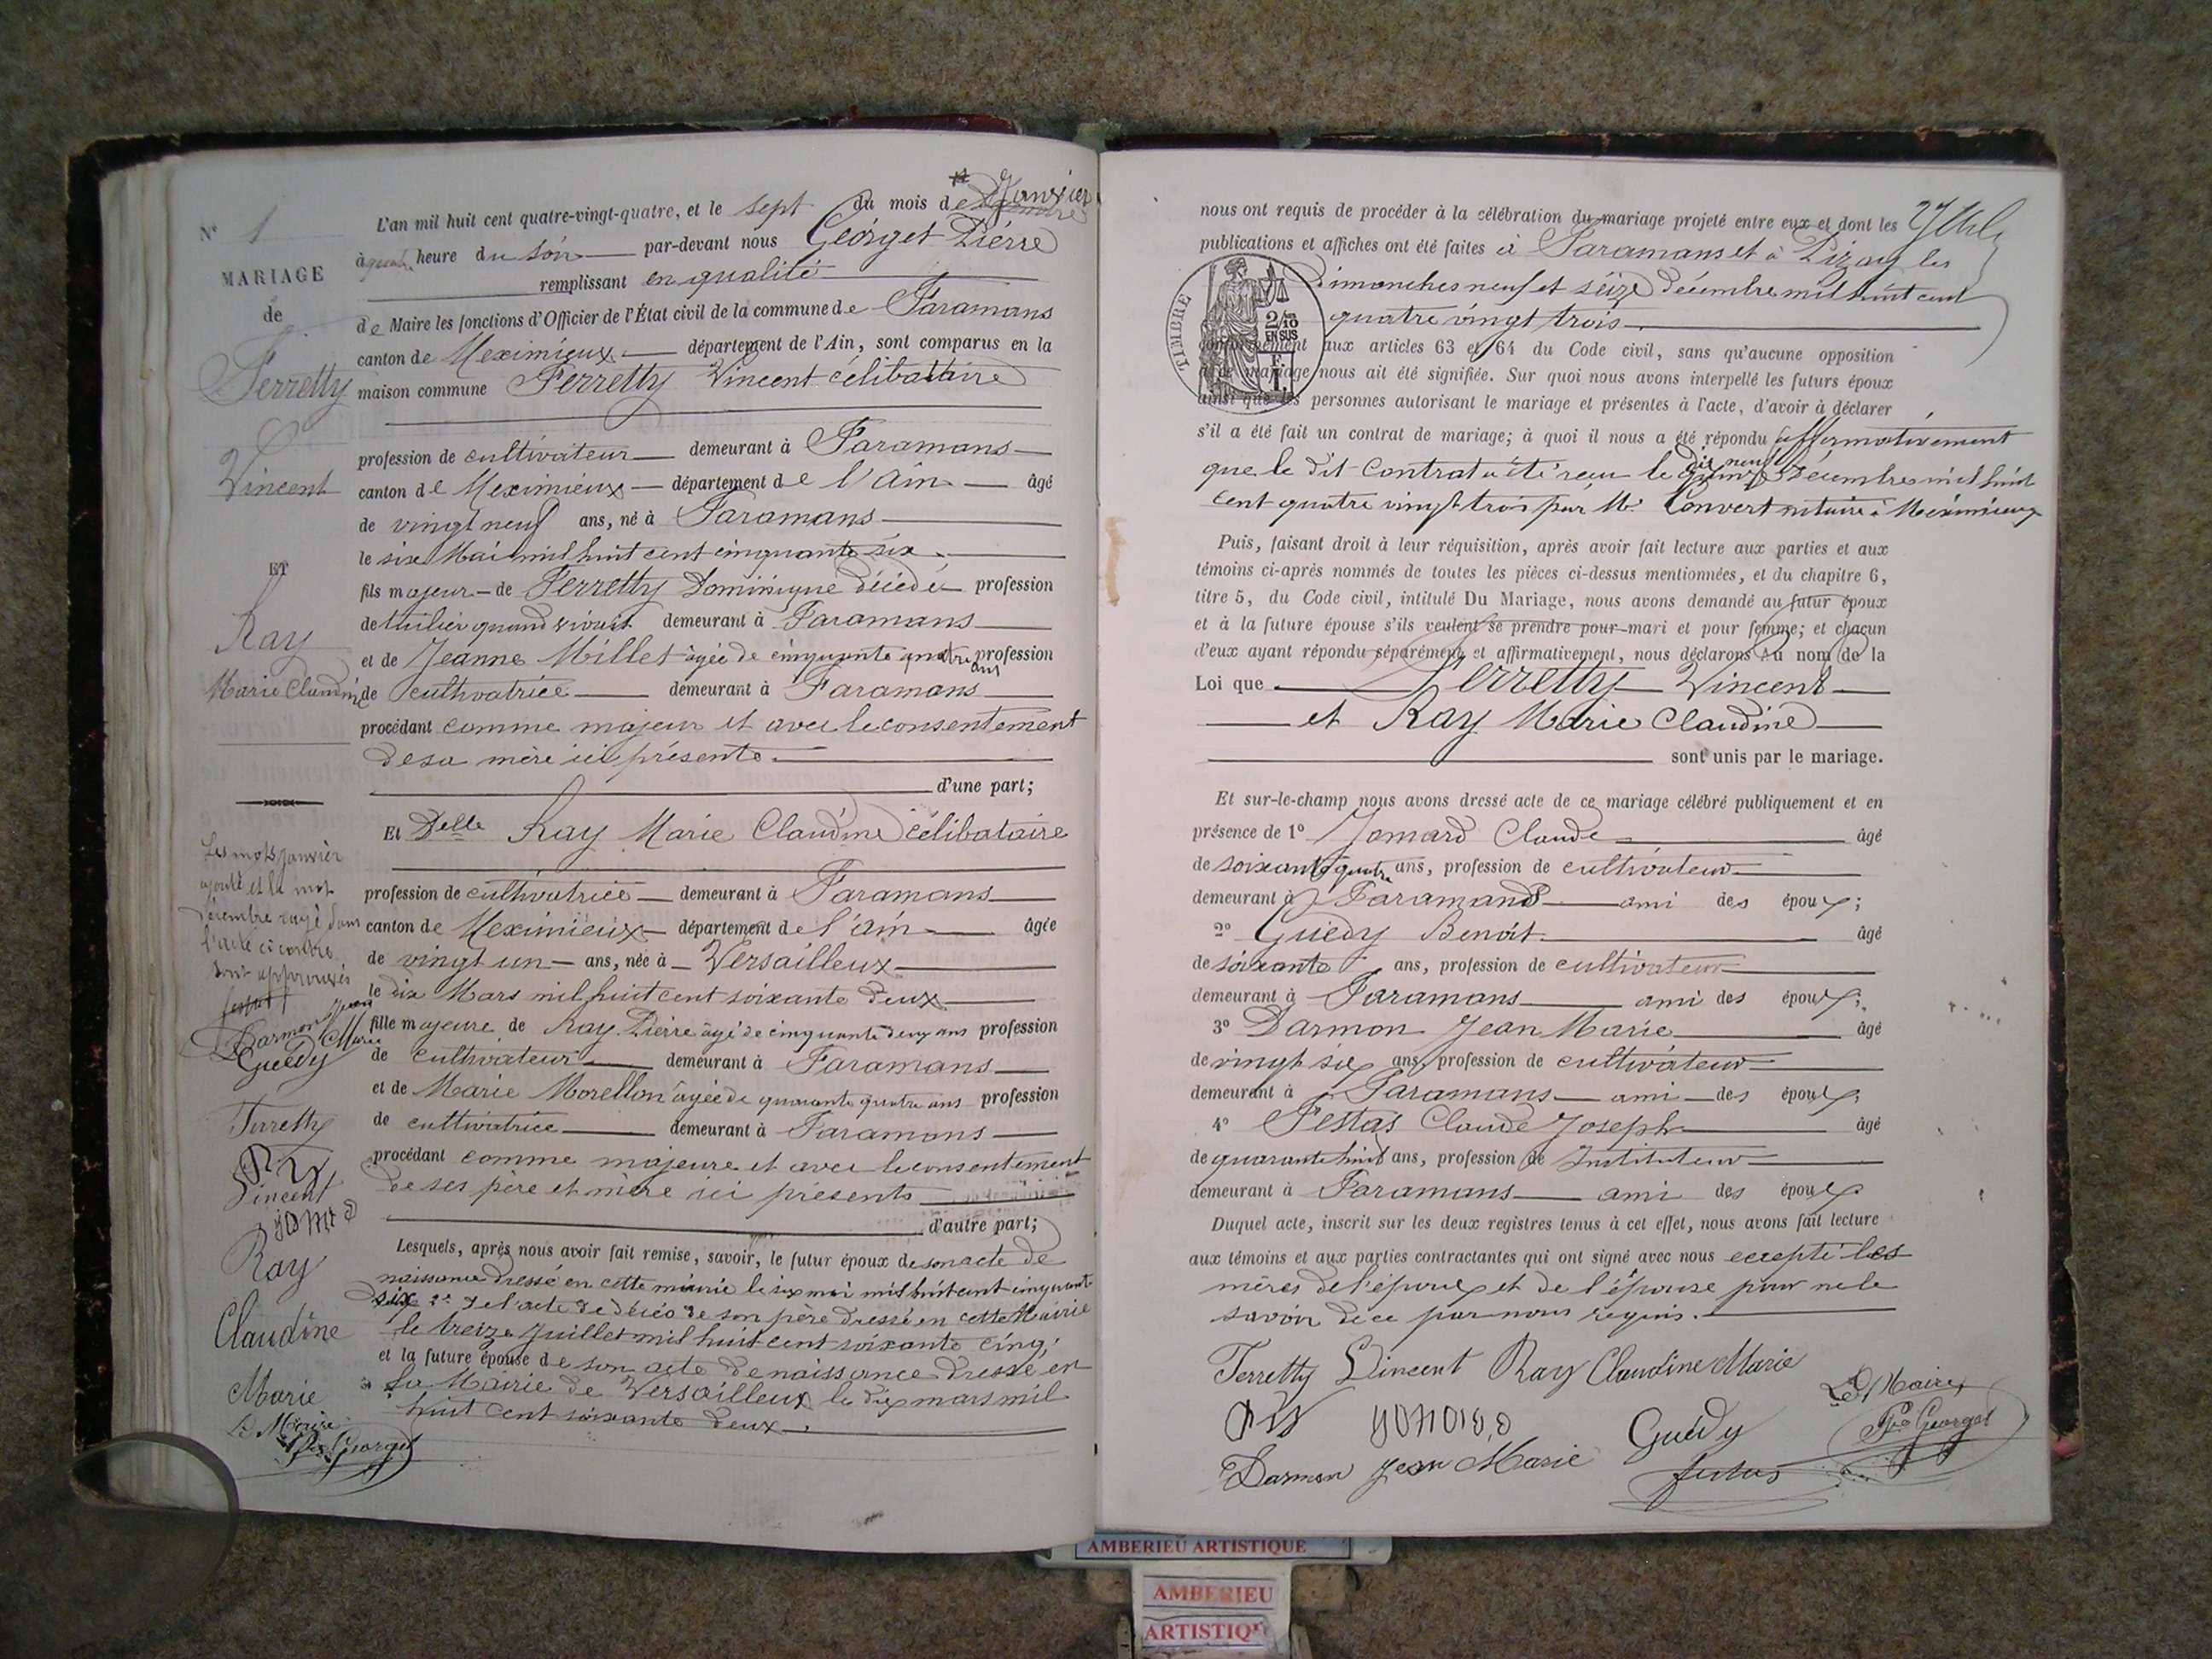 N° 1
MARIAGE
de
Ferretty
Vincent
ET
Ray
Marie Claudine
Les mots janvier
ajouté et le mot
Décembre rayé dans
l'acte ci contre
sont approuvés
Darmon Jean
Marie
Guédy
Ferretty
Vincent
Ray
Claudine
Marie
Le Maire
Pre Georget
L'an mil huit cent quatre-vingt-quatre, et le sept du mois de Janvier
à quatre heure du soir par-devant nous Georget Pierre
remplissant en qualité
de Maire les fonctions d'Officier de l'État civil de la commune de Faramans
canton de Meximieux département de l'Ain, sont comparus en la
maison commune Ferretty Vincent célibataire
profession de cultivateur demeurant à Faramans
canton de Meximieux département de l'Ain âgé
de vingt neuf ans, né à Faramans
le six Mai mil huit cent cinquante six
fils majeur de Ferretty Dominique décédé profession
de tuilier quand vivait demeurant à Faramans
et de Jeanne Millet âgée de cinquante quatre ans profession
de cultivatrice demeurant à Faramans
procédant comme majeur et avec le consentement
de sa mère ici présente.
d'une part;
Et Delle Ray Marie Claudine célibataire
profession de cultivatrice demeurant à Faramans
canton de Meximieux département de l'Ain âgée
de vingt un ans, née à Versailleux
le dix Mars mil huit cent soixante deux
fille majeure de Ray Pierre âgé de cinquante deux ans profession
de cultivateur demeurant à Faramans
et de Marie Morellon âgée de quarante quatre ans profession
de cultivatrice demeurant à Faramans
procédant comme majeure et avec le consentement
de ses père et mère ici présents
d'autre part;
Lesquels, après nous avoir fait remise, savoir, le futur époux de son acte de
naissance dressé en cette mairie le six mai mil huit cent cinquante
six 2° de l'acte de décès de son père dressé en cette Mairie
le treize Juillet mil huit cent soixante cinq,
et la future épouse de son acte de naissance dressé en
la Mairie de Versailleux le dix mars mil
huit cent soixante deux.
nous ont requis de procéder à la célébration du mariage projeté entre eux et dont les
publications et affiches ont été faites à Faramans et à Pizay les
Dimanches neuf et seize Décembre mil huit cent
quatre vingt trois
TIMBRE
2/10
EN SUS
conformément aux articles 63 et 64 du Code civil, sans qu'aucune opposition
à ce mariage nous ait été signifiée. Sur quoi nous avons interpellé les futurs époux
ainsi que les personnes autorisant le mariage et présentes à l'acte, d'avoir à déclarer
s'il a été fait un contrat de mariage; à quoi il nous a été répondu affirmativement
que le dit Contrat a été reçu le dix neuf Décembre mil huit
cent quatre vingt trois par Me Convert notaire à Meximieux
Puis, faisant droit à leur réquisition, après avoir fait lecture aux parties et aux
témoins ci-après nommés de toutes les pièces ci-dessus mentionnées, et du chapitre 6,
titre 5, du Code civil, intitulé Du Mariage, nous avons demandé au futur époux
et à la future épouse s'ils veulent se prendre pour mari et pour femme; et chacun
d'eux ayant répondu séparément et affirmativement, nous déclarons au nom de la
Loi que Ferretty Vincent
et Ray Marie Claudine
sont unis par le mariage.
Et sur-le-champ nous avons dressé acte de ce mariage célébré publiquement et en
présence de 1° Jomard Claude âgé
de soixante quatre ans, profession de cultivateur
demeurant à Faramans ami des époux;
2° Guédy Benoit âgé
de soixante ans, profession de cultivateur
demeurant à Faramans ami des époux;
3° Darmon Jean Marie âgé
de vingt six ans, profession de cultivateur
demeurant à Faramans ami des époux;
4° Festas Claude Joseph âgé
de quarante huit ans, profession de Instituteur
demeurant à Faramans ami des époux
Duquel acte, inscrit sur les deux registres tenus à cet effet, nous avons fait lecture
aux témoins et aux parties contractantes qui ont signé avec nous excepté les
mères de l'époux et de l'épouse pour ne le
savoir de ce par nous requis.
Ferretty Vincent Ray Claudine Marie
Le Maire
Guédy
Pre Georget
Darmon Jean Marie
festas
AMBERIEU ARTISTIQUE
AMBERIEU
ARTISTIQ